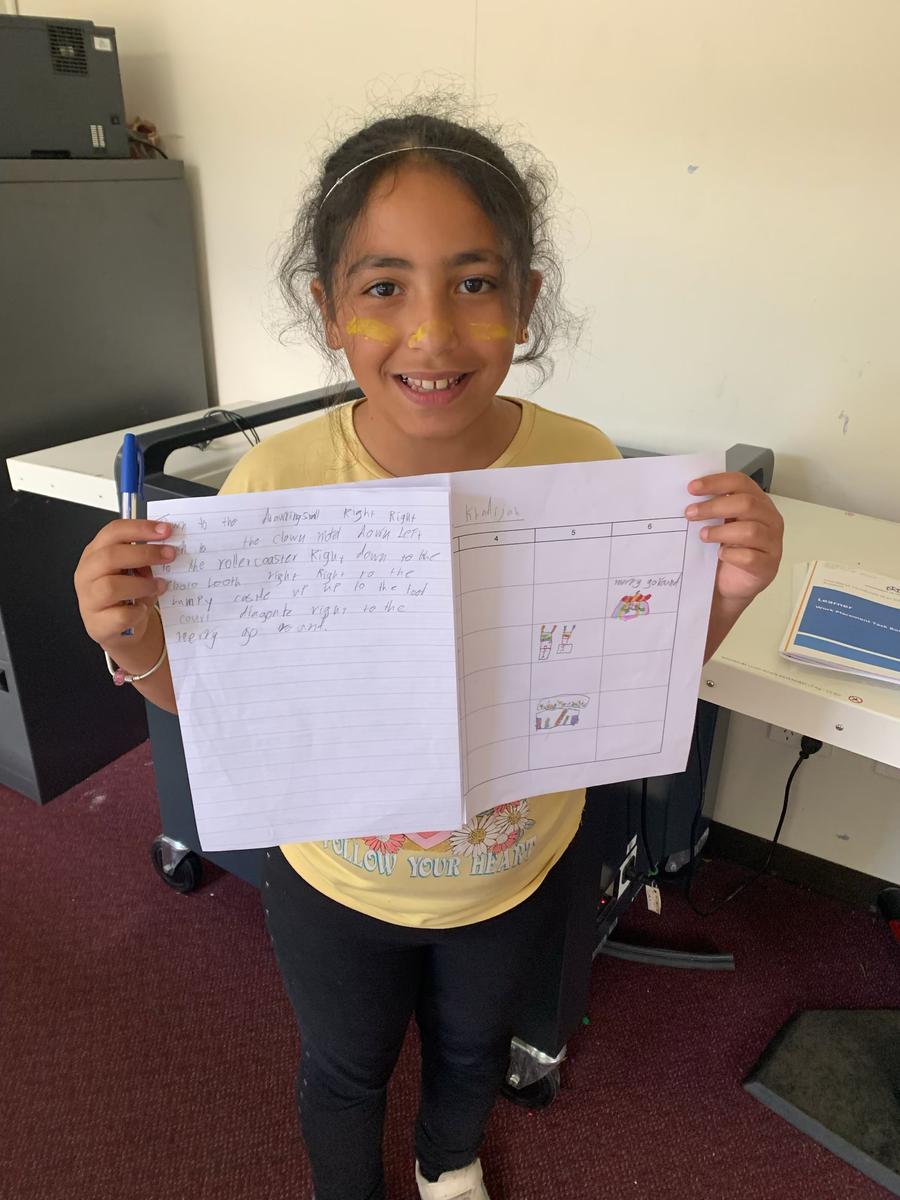 to the Right Right
to the clown ride down Left
to the rollercoaster Right down to the
photo booth right Right to the
bumpy castle up up to the food
court right to the
merry go round.
Khadijah
4 5 6
merry goround
Learner
Work Placement Task Boo
FOLLOW YOUR HEART